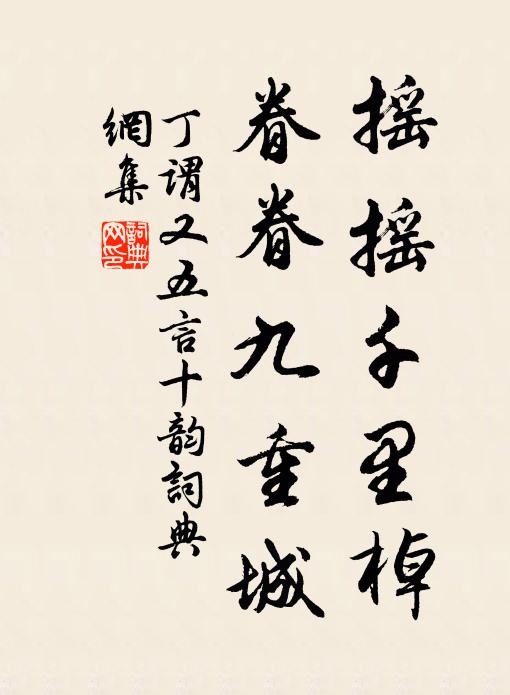 摇摇千里棹
眷眷九重城
丁谓又五言十韵词典
網集
詞典网印